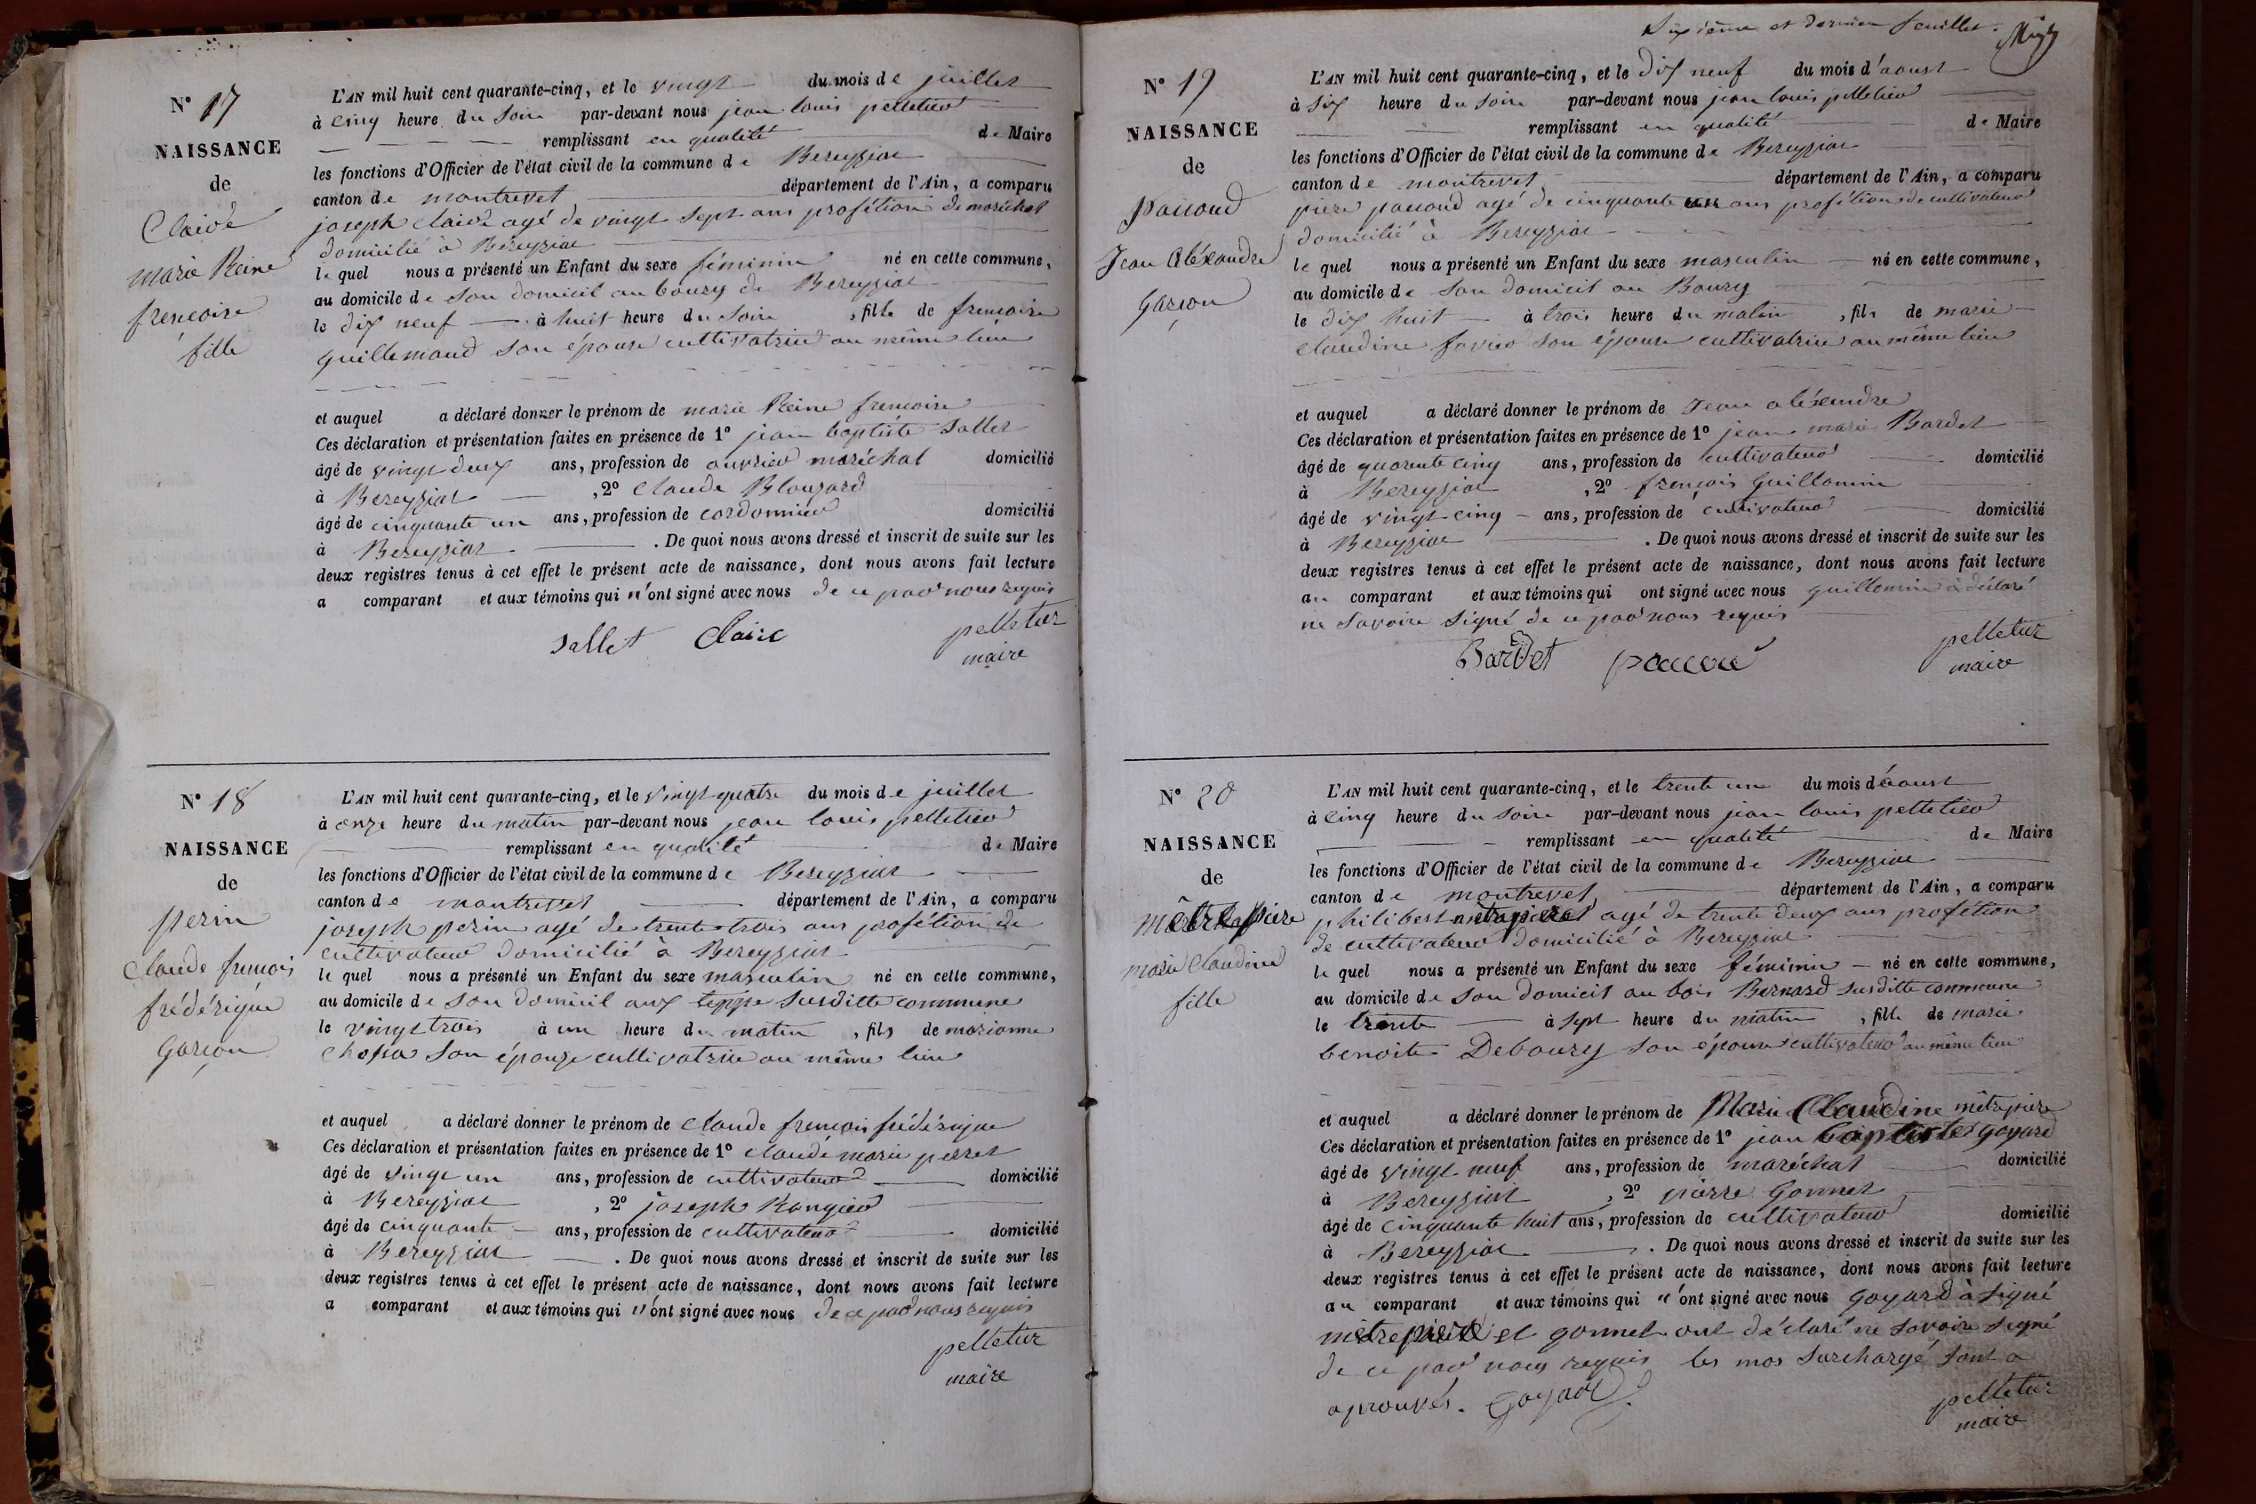 N° 17
NAISSANCE
de
Claire
marie Reine
frencoise
fille
L'AN mil huit cent quarante-cinq, et le vingt du mois de juillet
à cinq heure du soire par-devant nous jean louis pelletier
remplissant en qualité de Maire
les fonctions d'Officier de l'état civil de la commune de Bereyziat
canton de montrevet département de l'Ain, a comparu
joseph claire agé de vingt sept ans profétion de maréchal
domicilié à Béreyziat
le quel nous a présenté un Enfant du sexe féminin né en cette commune,
au domicile de son domicil au bourg de Bereyziat
le dix neuf à huit heure du soire , fille de frencoise
guillemaud son épouse cultivatrice au même lieu
et auquel a déclaré donner le prénom de marie Reine frencoise
Ces déclaration et présentation faites en présence de 1° jean baptiste Sallet
âgé de vingt deux ans, profession de ouvrier maréchal domicilié
à Bereyziat , 2° Claude Blouzard
âgé de cinquante un ans, profession de cordonnier domicilié
à Bereyziat . De quoi nous avons dressé et inscrit de suite sur les
deux registres tenus à cet effet le présent acte de naissance, dont nous avons fait lecture
a comparant et aux témoins qui n'ont signé avec nous de ce par nous requis
Sallet Claire pelletier
maire
N° 18
NAISSANCE
de
perin
Claude frencois
frédérique
Garçon
L'AN mil huit cent quarante-cinq, et le vingt quatre du mois de juillet
à onze heure du matin par-devant nous jean louis pelletier
remplissant en qualité de Maire
les fonctions d'Officier de l'état civil de la commune de Bereyziat
canton de montrevet département de l'Ain, a comparu
joseph perin agé de trente trois ans profétion de
cultivateur domicilié à Bereyziat
le quel nous a présenté un Enfant du sexe masculin né en cette commune,
au domicile de son domicil aux teppe susditte commune
le vingt trois à un heure du matin , fils de marianne
chossa son épouze cultivatrice au même lieu
et auquel a déclaré donner le prénom de claude frencois frédérique
Ces déclaration et présentation faites en présence de 1° claude marie perret
âgé de vingt un ans, profession de cultivateur domicilié
à Bereyziat , 2° joseph Rongier
âgé de cinquante ans, profession de cultivateur domicilié
à Bereyziat . De quoi nous avons dressé et inscrit de suite sur les
deux registres tenus à cet effet le présent acte de naissance, dont nous avons fait lecture
a comparant et aux témoins qui n'ont signé avec nous de ce par nous requis
pelletier
maire
Sixième et dernier feuillet.
N° 19
NAISSANCE
de
pauoud
Jean Aléxandre
Garçon
L'AN mil huit cent quarante-cinq, et le dix neuf du mois d'aoust
à six heure du soire par-devant nous jean louis pelletier
remplissant en qualité de Maire
les fonctions d'Officier de l'état civil de la commune de Bereyziat
canton de montrevet département de l'Ain, a comparu
piere pauoud agé de cinquante un ans profétion de cultivateur
domicilié à Bereyziat
le quel nous a présenté un Enfant du sexe masculin né en cette commune,
au domicile de son domicil au Bourg
le dix huit à trois heure du matin , fils de marie
claudine favier son épouse cultivatrice au même lieu
et auquel a déclaré donner le prénom de Jean aléxendre
Ces déclaration et présentation faites en présence de 1° jean marie Bardet
âgé de quarente cinq ans, profession de cultivateur domicilié
à Bereyziat , 2° frençois Guillomin
âgé de vingt cinq ans, profession de cultivateur domicilié
à Bereyziat . De quoi nous avons dressé et inscrit de suite sur les
deux registres tenus à cet effet le présent acte de naissance, dont nous avons fait lecture
au comparant et aux témoins qui ont signé avec nous guillomin à déclaré
ne savoire signé de ce par nous requis
Bardet pelletier
maire
N° 20
NAISSANCE
de
mêtrepiere
marie Claudine
fille
L'AN mil huit cent quarante-cinq, et le trente un du mois d'aoust
à cinq heure du soire par-devant nous jean louis pelletier
remplissant en qualité de Maire
les fonctions d'Officier de l'état civil de la commune de Bereyziat
canton de montrevet département de l'Ain, a comparu
philibert mêtrepiere agé de trente deux ans profétion
de cultivateur domicilié à Bereyziat
le quel nous a présenté un Enfant du sexe féminin né en cette commune,
au domicile de son domicil au bois Bernard susditte commune
le trente à sept heure du matin , fille de marie
benoite Debourg son épouse cultivateur au même lieu
et auquel a déclaré donner le prénom de Marie Claudine mêtrepiere
Ces déclaration et présentation faites en présence de 1° jean baptiste goyard
âgé de vingt neuf ans, profession de maréchal domicilié
à Bereyziat , 2° pierre Gonnet
âgé de cinquante huit ans, profession de cultivateur domicilié
à Bereyziat . De quoi nous avons dressé et inscrit de suite sur les
deux registres tenus à cet effet le présent acte de naissance, dont nous avons fait lecture
au comparant et aux témoins qui n'ont signé avec nous goyard à signé
mêtrepiere et gonnet ont déclaré ne savoire signé
de ce par nous requis les mos surchargé sont a
aprouvés. Goyard pelletier
maire